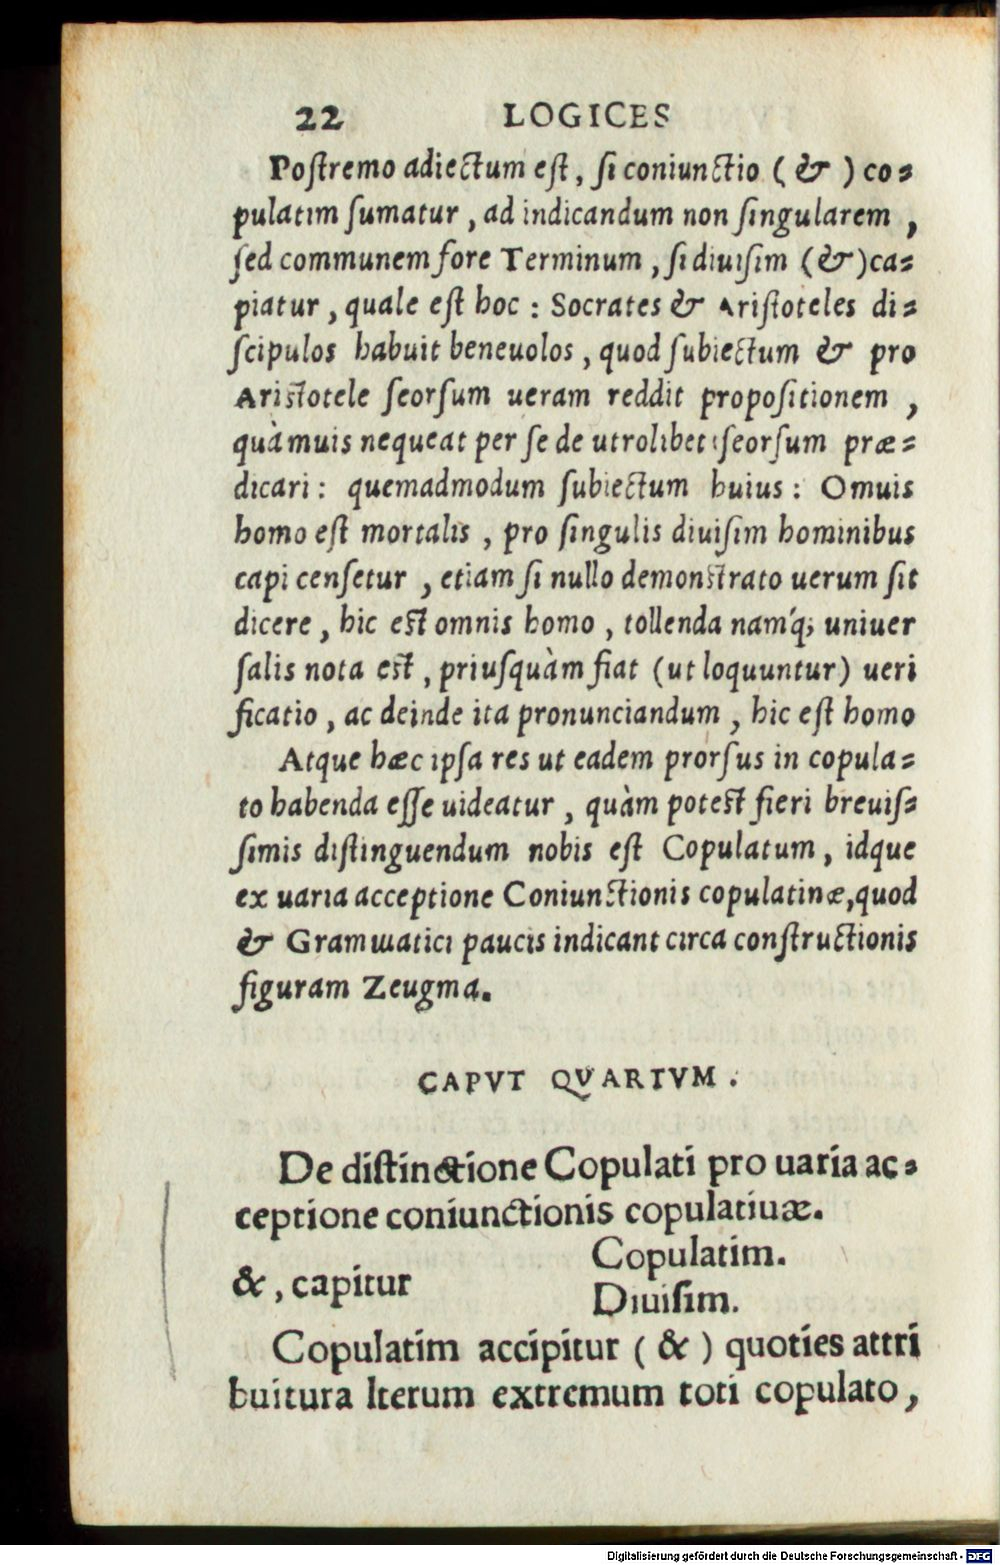 22 LOGICES
Poſtremo adiectum eſt, ſi coniunctio ( & ) co⸗
pulatim ſumatur, ad indicandum non ſingularem,
ſed communem fore Terminum, ſi diuiſim (&) ca⸗
piatur, quale eſt hoc: Socrates & Ariſtoteles di⸗
ſcipulos habuit beneuolos, quod ſubiectum & pro
Ariſtotele ſeorſum ueram reddit propoſitionem,
quàmuis nequeat per ſe de utrolibet ſeorſum præ⸗
dicari: quemadmodum ſubiectum huius: Omuis
homo eſt mortalis, pro ſingulis diuiſim hominibus
capi cenſetur, etiam ſi nullo demonſtrato uerum ſit
dicere, hic eſt omnis homo, tollenda namq́; uniuer
ſalis nota eſt, priuſquàm fiat (ut loquuntur) ueri
ficatio, ac deinde ita pronunciandum, hic eſt homo
Atque hæc ipſa res ut eadem prorſus in copula⸗
to habenda eſſe uideatur, quàm poteſt fieri breuiſ⸗
ſimis diſtinguendum nobis eſt Copulatum, idque
ex uaria acceptione Coniunctionis copulatinæ, quod
& Gramwatici paucis indicant circa conſtructionis
figuram Zeugma.
CAPVT QVARTVM.
De diſtinctione Copulati pro uaria ac⸗
ceptione coniunctionis copulatiuæ.
Copulatim.
&, capitur
Diuiſim.
Copulatim accipitur ( & ) quoties attri
buitura lterum extremum toti copulato,
Digitalisierung gefördert durch die Deutsche Forschungsgemeinschaft - DFG